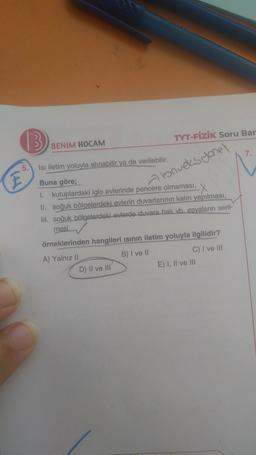 B BENİM HOCAM
TYT-FİZİK Soru Ban
5. Isı iletim yoluyla alınabilir ya da verilebilir.
7.
E
Buna göre;
→ konveksiyonel
I. kutuplardaki iglo evlerinde pencere olmaması,
II. soğuk bölgelerdeki evlerin duvarlarının kalın yapılması,
III. soğuk bölgelerdeki evlerde duvara halı vb. eşyaların asıl-
ması
örneklerinden hangileri ısının iletim yoluyla ilgilidir?
A) Yalnız II
B) I ve II
C) I ve III
D) II ve III
E) I, II ve III